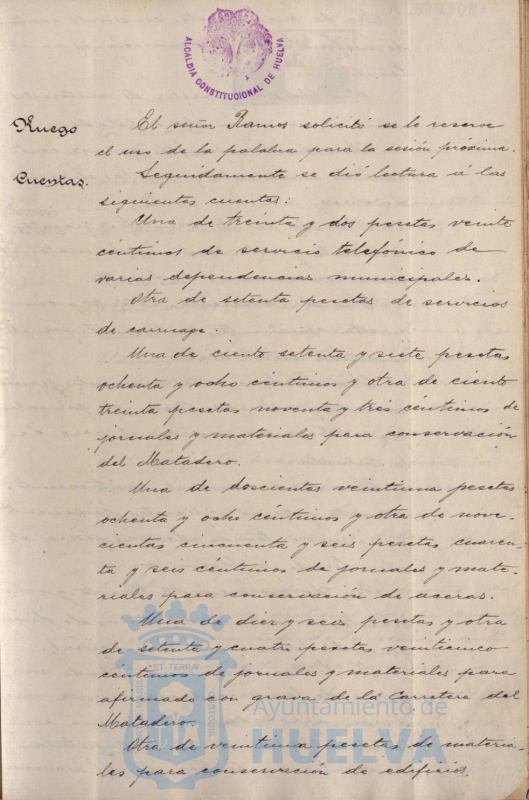 ALCALDIA CONSTITUCIONAL DE HUELVA
Ruego
El señor Ramos solicitó se le reserve
el uso de la palabra para la sesión próxima.
Cuentas.
Seguidamente se dió lectura á las
siguientes cuentas:
Una de treinta y dos pesetas veinte
céntimos de servicio telefónico de
varias dependencias municipales.
Otra de setenta pesetas de servicios
de carruage.
Una de ciento setenta y siete pesetas
ochenta y ocho céntimos y otra de ciento
treinta pesetas noventa y tres céntimos de
jornales y materiales para conservación
del Matadero.
Una de doscientas veintiuna pesetas
ochenta y ocho céntimos y otra de nove-
cientas cincuenta y seis pesetas cuaren-
ta y seis céntimos de jornales y mate-
riales para conservación de aceras.
Una de diez y seis pesetas y otra
de setenta y cuatro pesetas veinticinco
céntimos de jornales y materiales para
afirmado con grava de la Carretera del
Matadero.
Otra de veintiuna pesetas de materia-
les para conservación de edificios.
ET TERRÆ
Ayuntamiento de
HUELVA